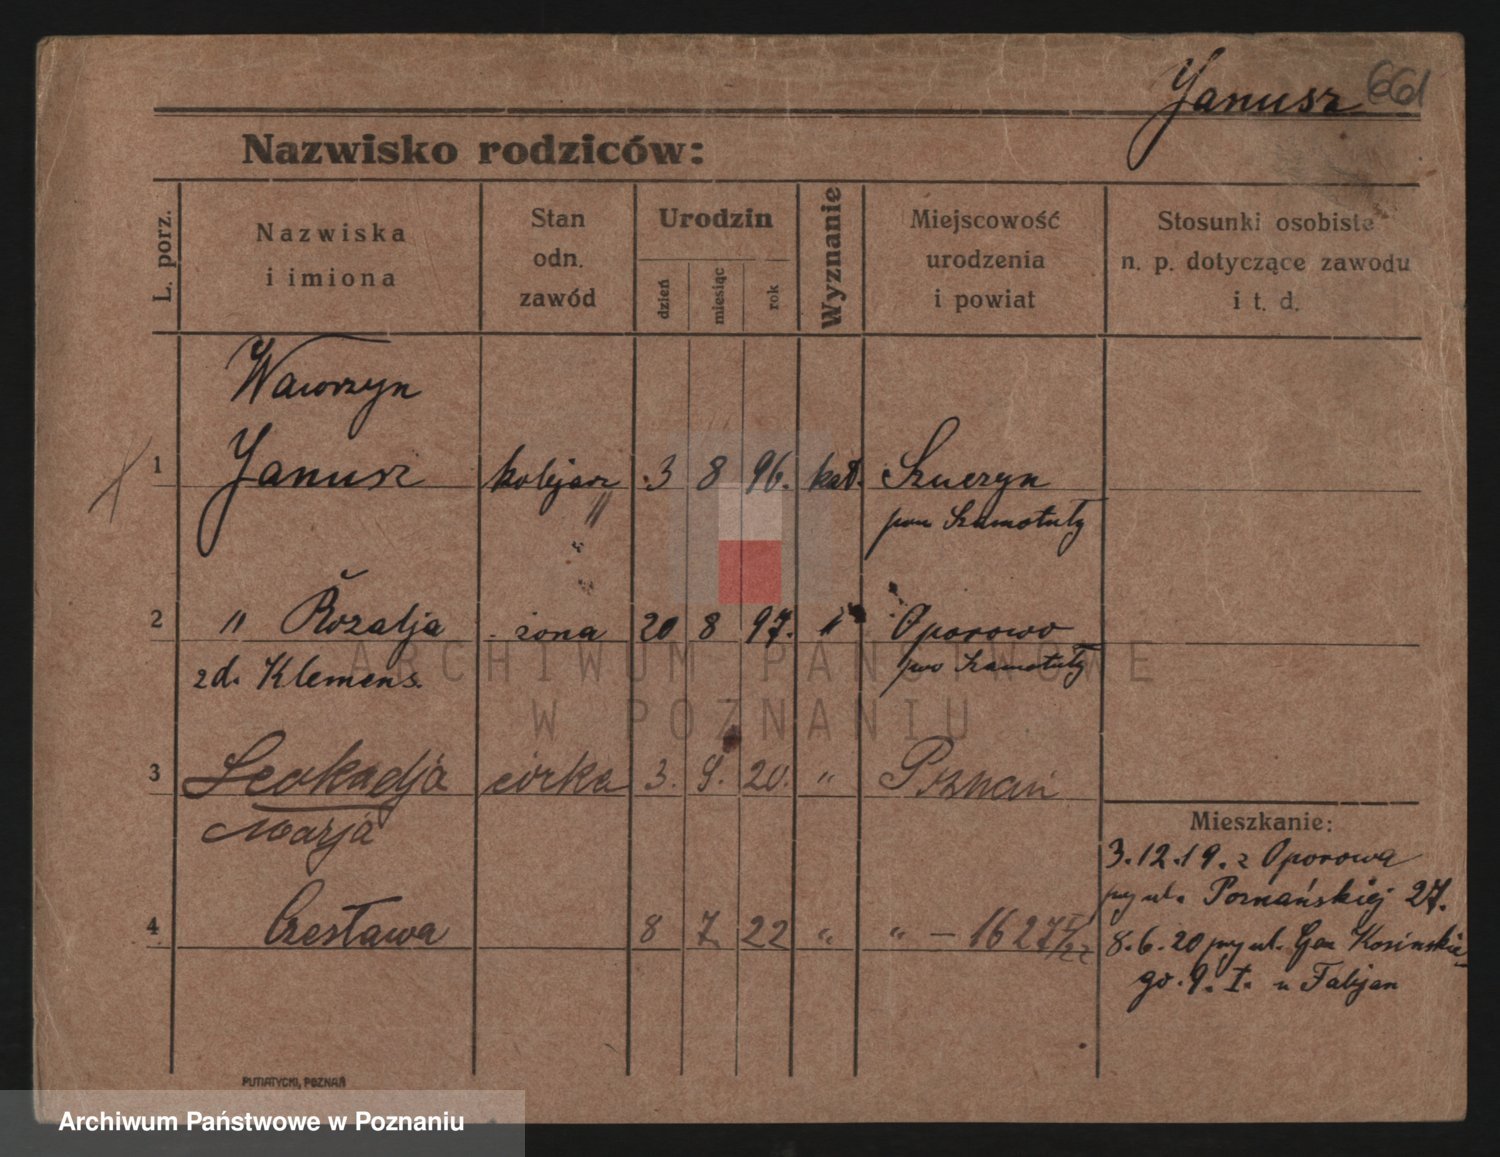 Janusz 661
Nazwisko rodziców:
L. porz.
Nazwiska
i imiona
Stan
odn.
zawód
Urodzin
dzień
miesiąc
rok
Wyznanie
Miejscowość
urodzenia
i powiat
Stosunki osobiste
n. p. dotyczące zawodu
i t. d.
Wawrzyn
1 Janusz kolejarz 3 8 96. kat. Szuczyn
pow Szamotuły
2 " Rozalja żona 20 8 97. " Oporowo
pow Szamotuły
zd. Klemens.
3 Leokadja córka 3. 9. 20. " Poznań
Marja
4 Czesława 8 7. 22 " " – 1627
Mieszkanie:
3.12.19. z Oporowa
przy ul. Poznańskiej 27.
8.6.20 przy ul. Gen Kosinskie-
go. 9. I. u Fabjan
PUTIATYCKI, POZNAŃ
ARCHIWUM PAŃSTWOWE
W POZNANIU
Archiwum Państwowe w Poznaniu